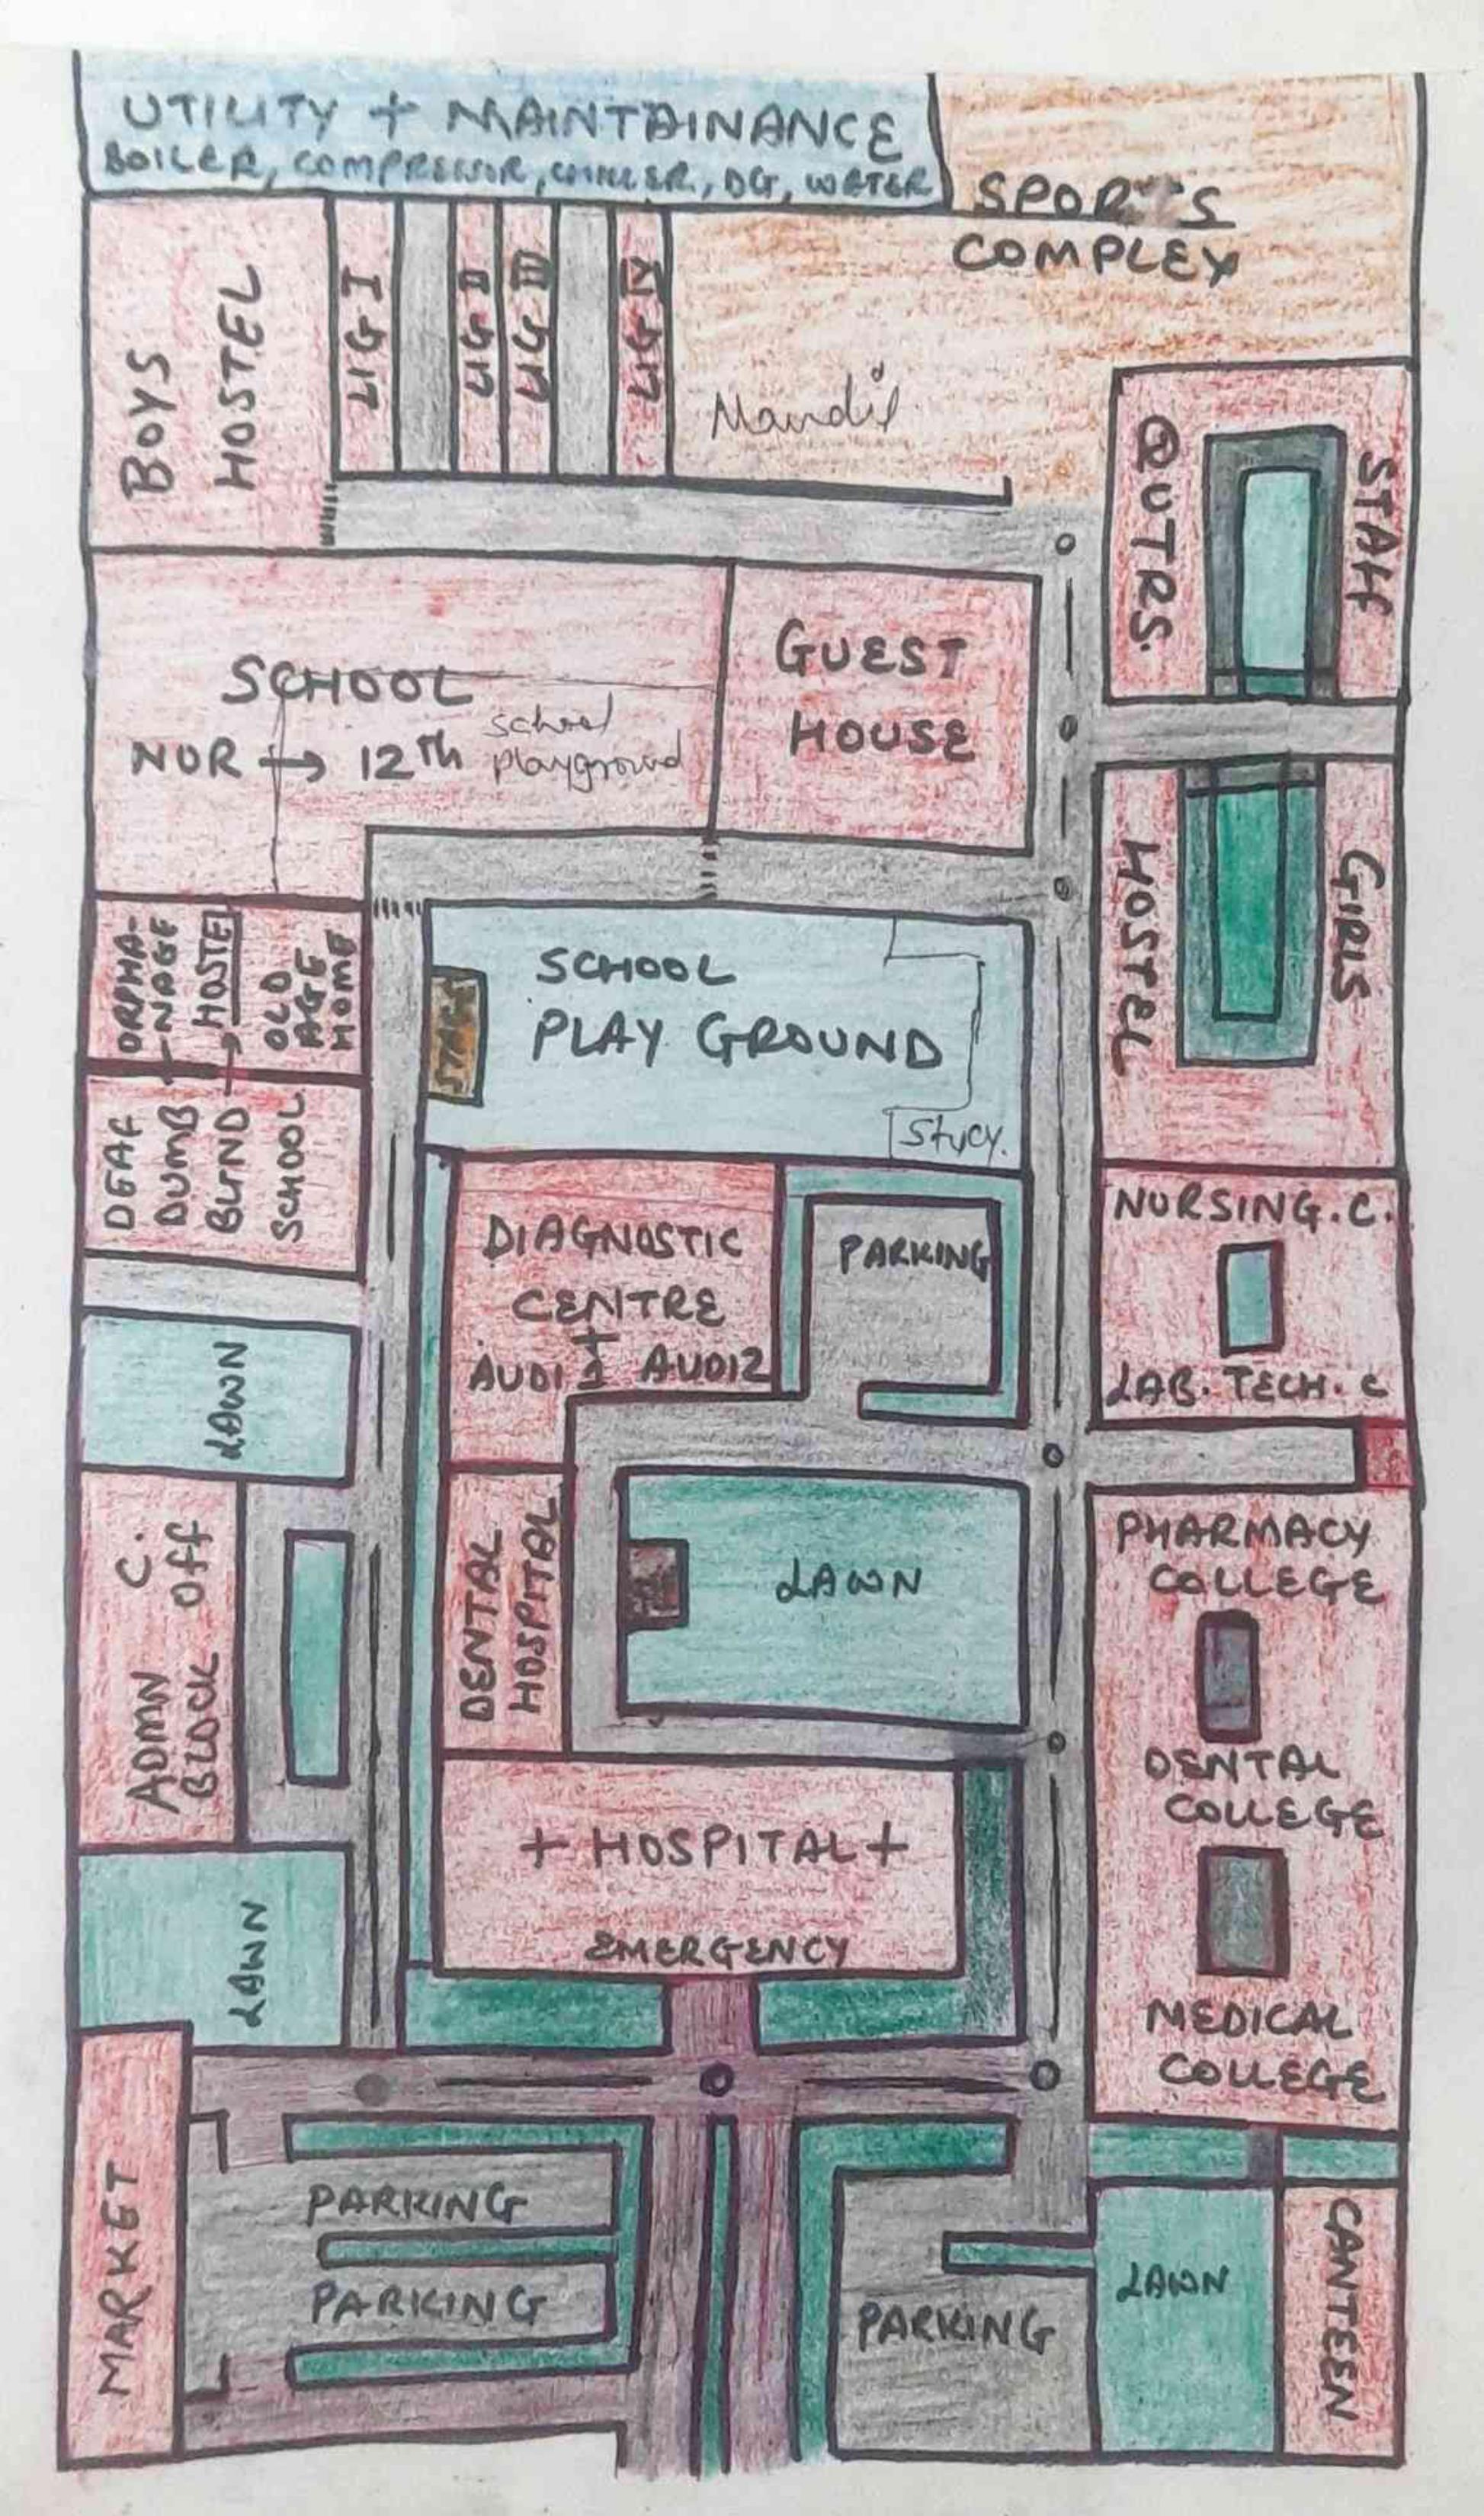 UTILITY + MAINTAINANCE
BOILER, COMPRESSOR, CHILLER, DG, WATER
SPOR S
COMPLEX
BOYS
HOSTEL
LIG I
LIG II
LIG III
LIG IV
Mandir
STAFF
QUTRS.
SCHOOL
NUR → 12Th
school
playground
GUEST
HOUSE
GIRLS
HOSTEL
ORPHA-
NAGE
HOSTEL
OLD
AGE
HOME
STAGE
SCHOOL
PLAY GROUND
DEAF
DUMB
BLIND
SCHOOL
DIAGNOSTIC
CENTRE
+
AUDI 1 AUDI2
PARKING
NURSING. C.
LAB. TECH. C
LAWN
ADMN C.
BLOCK OFF
DENTAL
HOSPITAL
LAWN
PHARMACY
COLLEGE
DENTAL
COLLEGE
MEDICAL
COLLEGE
+ HOSPITAL +
EMERGENCY
LAWN
MARKET
PARKING
PARKING
PARKING
LAWN
CANTEEN